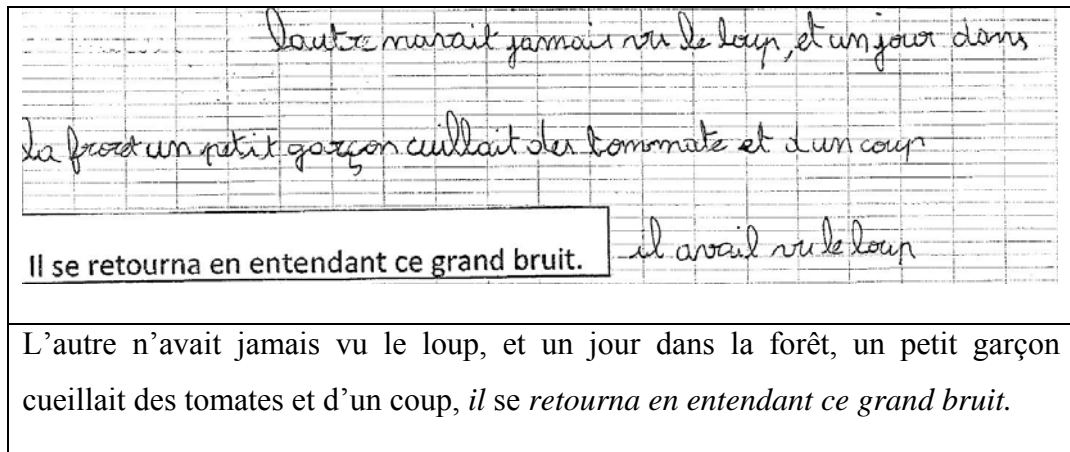 lautre navait jamais vu le loup, et un jour dans
la frorêt un petit garçon cuillait des tommate et d'un coup
Il se retourna en entendant ce grand bruit. il avail vu le loup
L’autre n’avait jamais vu le loup, et un jour dans la forêt, un petit garçon
cueillait des tomates et d’un coup, il se retourna en entendant ce grand bruit.